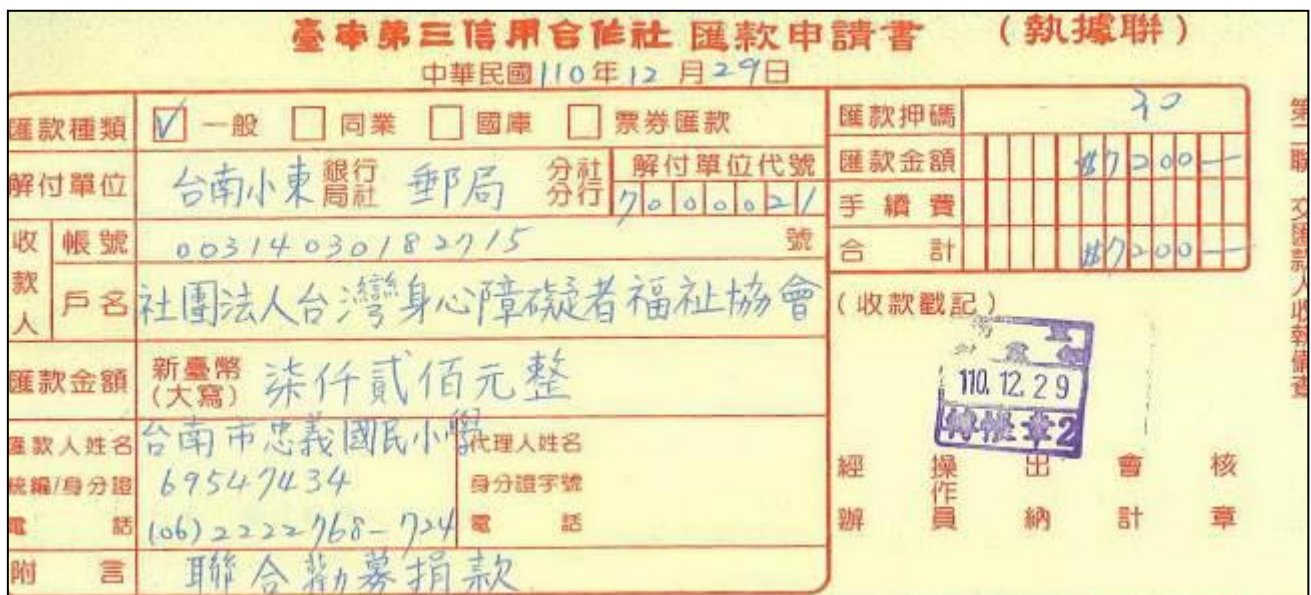 臺南第三信用合作社 匯款申請書 (執據聯)
中華民國110年12月29日
匯款種類 ☑ 一般 □ 同業 □ 國庫 □ 票券匯款
解付單位 台南小東 銀行局社 郵局 分社分行 解付單位代號 7000021
收款人 帳號 00314030182715 號
戶名 社團法人台灣身心障礙者福祉協會
匯款金額 新臺幣(大寫) 柒仟貳佰元整
匯款人姓名 台南市忠義國民小學 代理人姓名
統編/身分證 69547434 身分證字號
電話 (06)2222768-724 電話
附言 聯合勸募捐款
匯款押碼 30
匯款金額 #7200—
手續費
合計 #7200—
(收款戳記)
110.12.29
轉帳章2
經辦 操作員 出納 會計 核章
第二聯 交匯款人收執備查